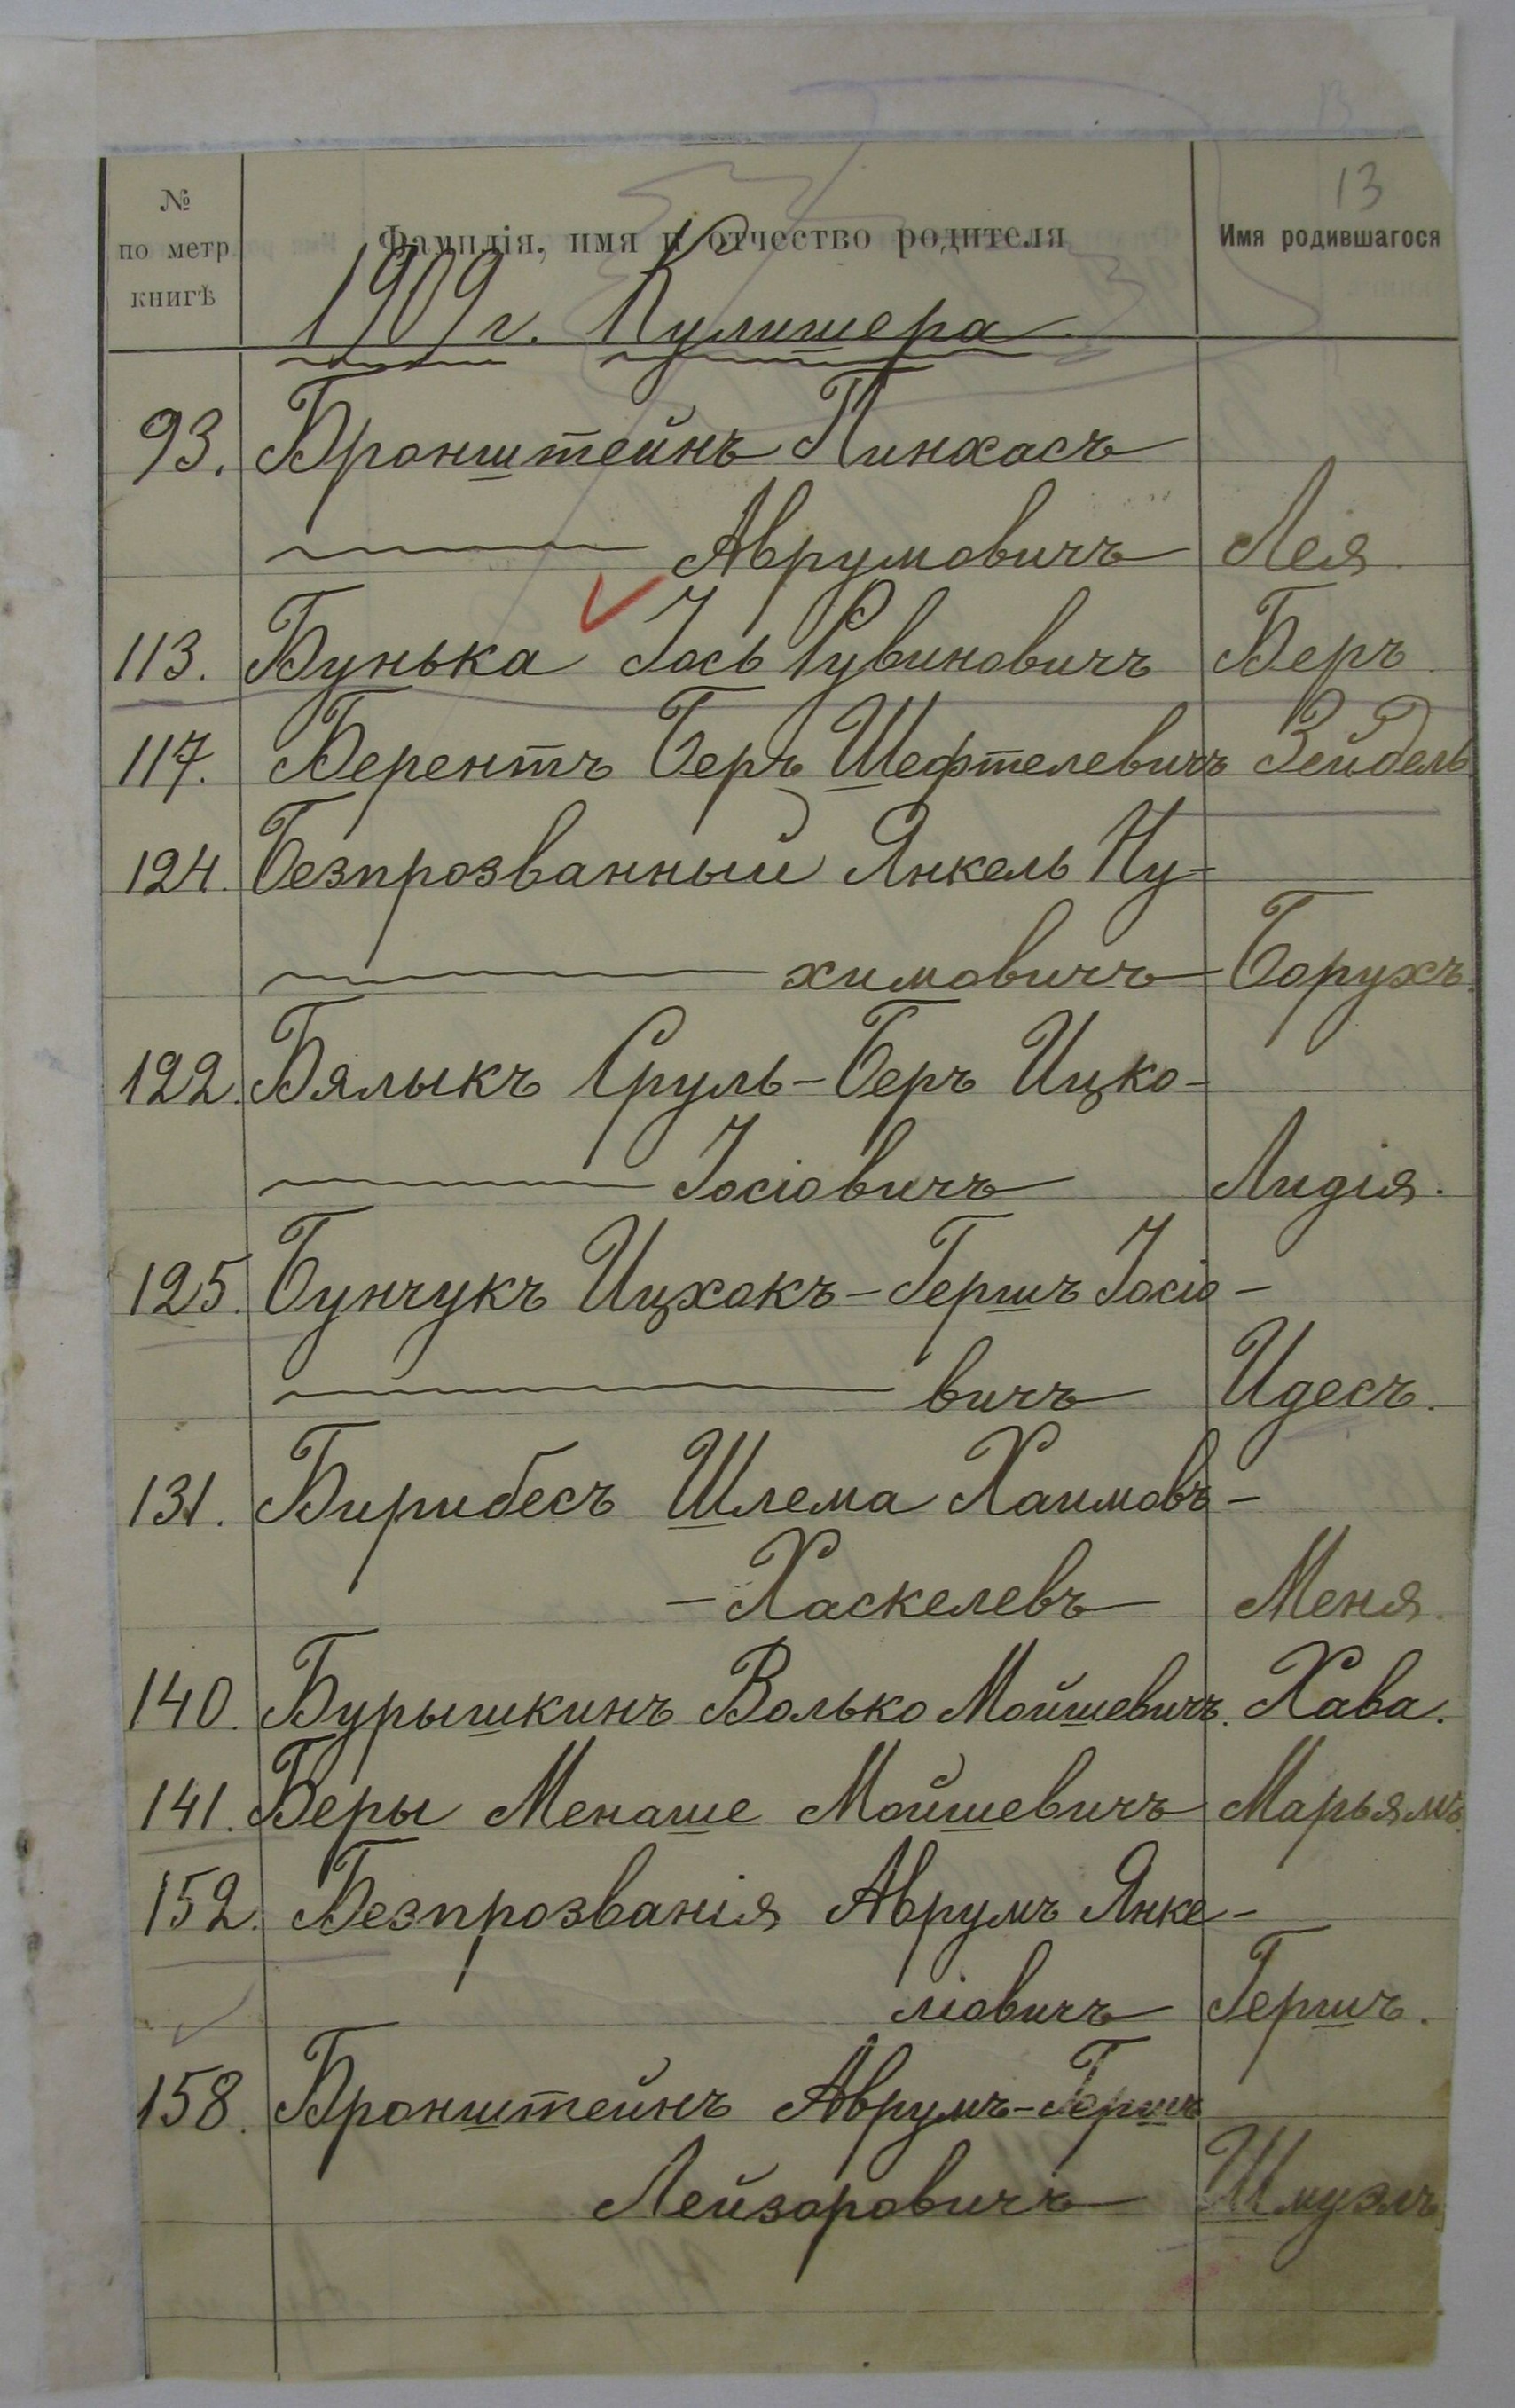 13
№ по метр. книгѣ
Фамилія, имя и отчество родителя
Имя родившагося
1909 г. Кулишера
93. Бронштейнъ Пинхасъ
Аврумовичъ Лея.
113. Бунька Іось Рувиновичъ Беръ.
117. Берентъ Беръ Шефтелевичъ Зейдель
124. Безпрозванный Янкель Ну-
химовичъ Борухъ.
122. Бялыкъ Сруль-Беръ Ицко-
Іосіовичъ Лидія.
125. Бунчукъ Ицхокъ-Гершъ Іосіо-
вичъ Идесъ.
131. Бирибесъ Шлема Хаимовъ-
-Хаскелевъ Меня.
140. Бурышкинъ Волько Мойшевичъ. Хава.
141. Беры Менаше Мойшевичъ Марьямъ.
152. Безпрозванія Аврумъ Янке-
ліовичъ Гершъ.
158. Бронштейнъ Аврумъ-Гершъ
Лейзоровичъ Шмуэлъ